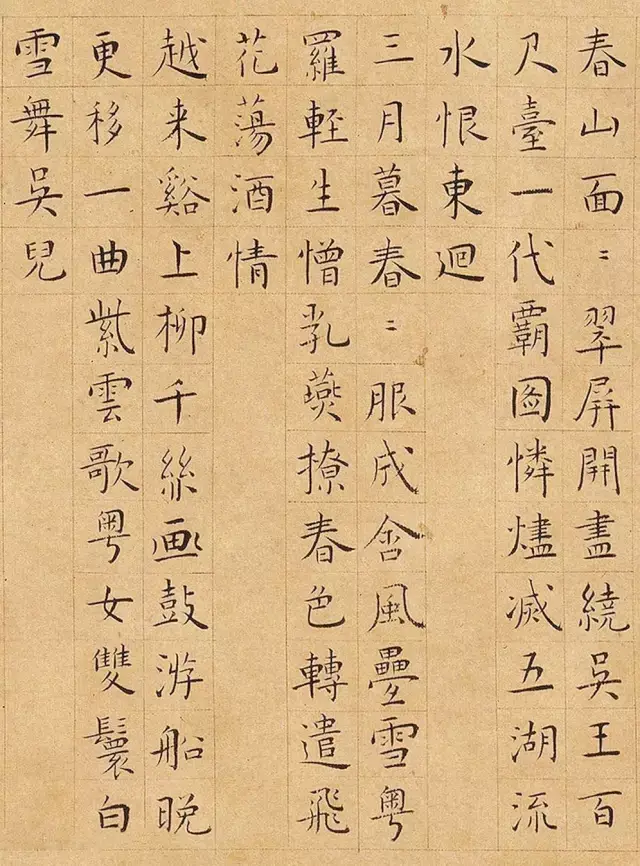 春山面〻翠屏開盡繞吳王百
尺臺一代霸圖憐燼滅五湖流
水恨東迴
三月暮春〻服成含風疊雪粵
羅輕生憎乳燕撩春色轉遣飛
花蕩酒情
越来谿上柳千絲画鼓游船晚
更移一曲紫雲歌粵女雙鬟白
雪舞吳兒